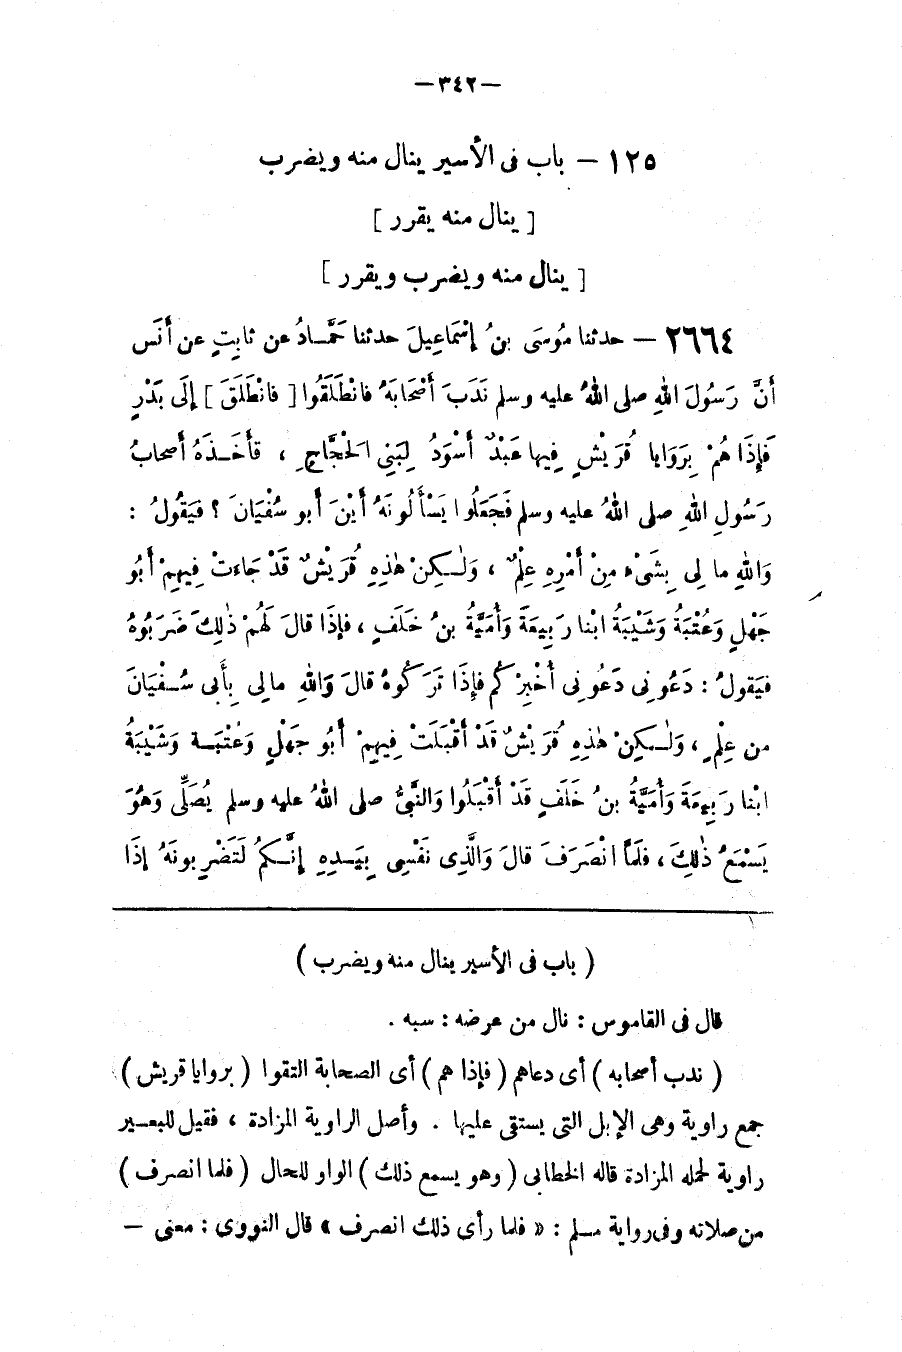 —٣٤٢—
١٢٥ — باب فى الأسير ينال منه ويضرب
[ ينال منه يقرر ]
[ ينال منه ويضرب ويقرر ]
٢٦٦٤ — حدثنا مُوسَى بنُ إسْمَاعِيلَ حدثنا حَمَّـادُ عن ثابِتٍ عن أنَس
أنَّ رَسُولَ اللهِ صلى اللهُ عليه وسلم نَدَبَ أصْحَابَهُ فانْطَلَقُوا [ فانْطَلَقَ ] إلَى بَدْرٍ
فَإِذَا هُمْ بِرَوَايا قُرَيْشٍ فِيها عَبْدٌ أسْوَدُ لِبَنِى الْحْجَّاجِ ، فأخَـذَهُ أصحابُ
رَسُولِ اللهِ صلى اللهُ عليه وسلم فَجَعَلُوا يَسْألُونَهُ أيْنَ أبو سُفْيَانَ ؟ فيَقُولُ :
وَاللهِ ما لِى بِشَىْءٍ مِنْ أمْرِهِ عِلْمٌ ، وَلٰـكِنْ هٰذِهِ قُرَيْشٌ قَدْ جَاءتْ فِيهِمْ أبُو
جَهْلٍ وَعُتْبَةُ وَشَيْبَةُ ابْنا رَبِيعَةَ وَأُمَيَّةُ بنُ خَلَفٍ ، فإذَا قالَ لَهُمْ ذٰلِكَ ضَرَبُوهُ
فيَقولُ : دَعُونِى دَعُونِى أُخْبِرْكُم فإذَا تَرَكُوهُ قالَ وَاللهِ مالِى بِأبى سُـفْيَانَ
من عِلْمٍ ، وَلٰـكِنْ هٰذِهِ قُرَيْشٌ قَدْ أقْبَلَتْ فِيهِمْ أبُو جَهْلٍ وَعُتْبَـة وَشَيْبَةُ
ابْنا رَبِيعَةَ وَأُمَيَّةُ بنُ خَلَفٍ قَدْ أقْبَلُوا وَالنَّبىُّ صلى اللهُ عليه وسلم يُصَلِّى وَهُوَ
يَسْمَعُ ذٰلِكَ ، فلَمَّا انْصَرَفَ قالَ وَالَّذِى نَفْسِى بِيَـدِهِ إنَّـكُمْ لَتَضْرِبونَهُ إذَا
( باب فى الأسير ينال منه ويضرب )
قال فى القاموس : نال من عرضه : سبه .
( ندب أصحابه ) أى دعاهم ( فإذا هم ) أى الصحابة التقوا ( بروايا قريش )
جمع راوية وهى الإبل التى يستقى عليها . وأصل الراوية المزادة ، فقيل للبعـير
راوية لحمله المزادة قاله الخطابى ( وهو يسمع ذلك ) الواو للحال ( فلما انصرف )
من صلاته وفى رواية مسلم : « فلما رأى ذلك انصرف » قال النووى : معنى —